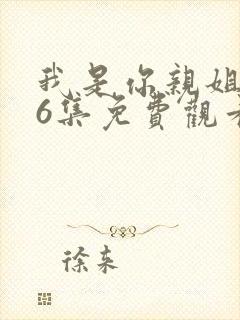 我是你親姐
6集免費觀看
徐來